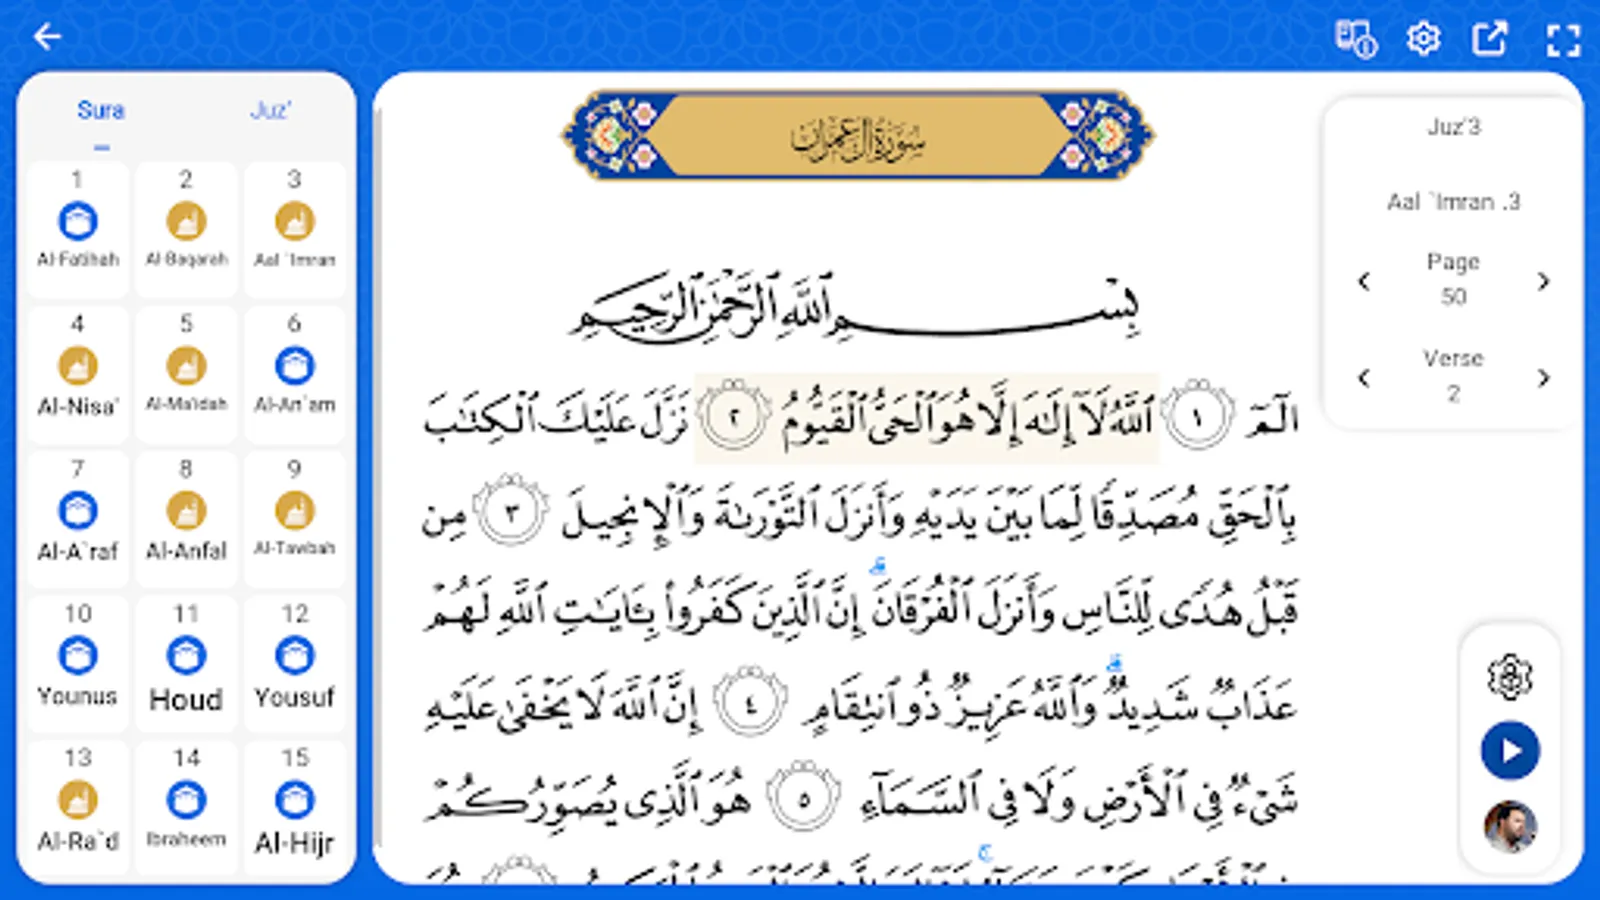 Sura
Juz'
1
Al-Fatihah
2
Al-Baqarah
3
Aal `Imran
4
Al-Nisa'
5
Al-Ma'idah
6
Al-An`am
7
Al-A`raf
8
Al-Anfal
9
Al-Tawbah
10
Younus
11
Houd
12
Yousuf
13
Al-Ra`d
14
Ibraheem
15
Al-Hijr
سُورَةُ آلِ عِمْرَان
بِسْمِ ٱللَّهِ ٱلرَّحْمَٰنِ ٱلرَّحِيمِ
الٓمٓ ١ ٱللَّهُ لَآ إِلَٰهَ إِلَّا هُوَ ٱلْحَىُّ ٱلْقَيُّومُ ٢ نَزَّلَ عَلَيْكَ ٱلْكِتَٰبَ
بِٱلْحَقِّ مُصَدِّقًا لِّمَا بَيْنَ يَدَيْهِ وَأَنزَلَ ٱلتَّوْرَىٰةَ وَٱلْإِنجِيلَ ٣ مِن
قَبْلُ هُدًى لِّلنَّاسِ وَأَنزَلَ ٱلْفُرْقَانَۗ إِنَّ ٱلَّذِينَ كَفَرُوا۟ بِـَٔايَٰتِ ٱللَّهِ لَهُمْ
عَذَابٌ شَدِيدٌۗ وَٱللَّهُ عَزِيزٌ ذُو ٱنتِقَامٍ ٤ إِنَّ ٱللَّهَ لَا يَخْفَىٰ عَلَيْهِ
شَىْءٌ فِى ٱلْأَرْضِ وَلَا فِى ٱلسَّمَآءِ ٥ هُوَ ٱلَّذِى يُصَوِّرُكُمْ
Juz'3
Aal `Imran .3
Page
50
Verse
2